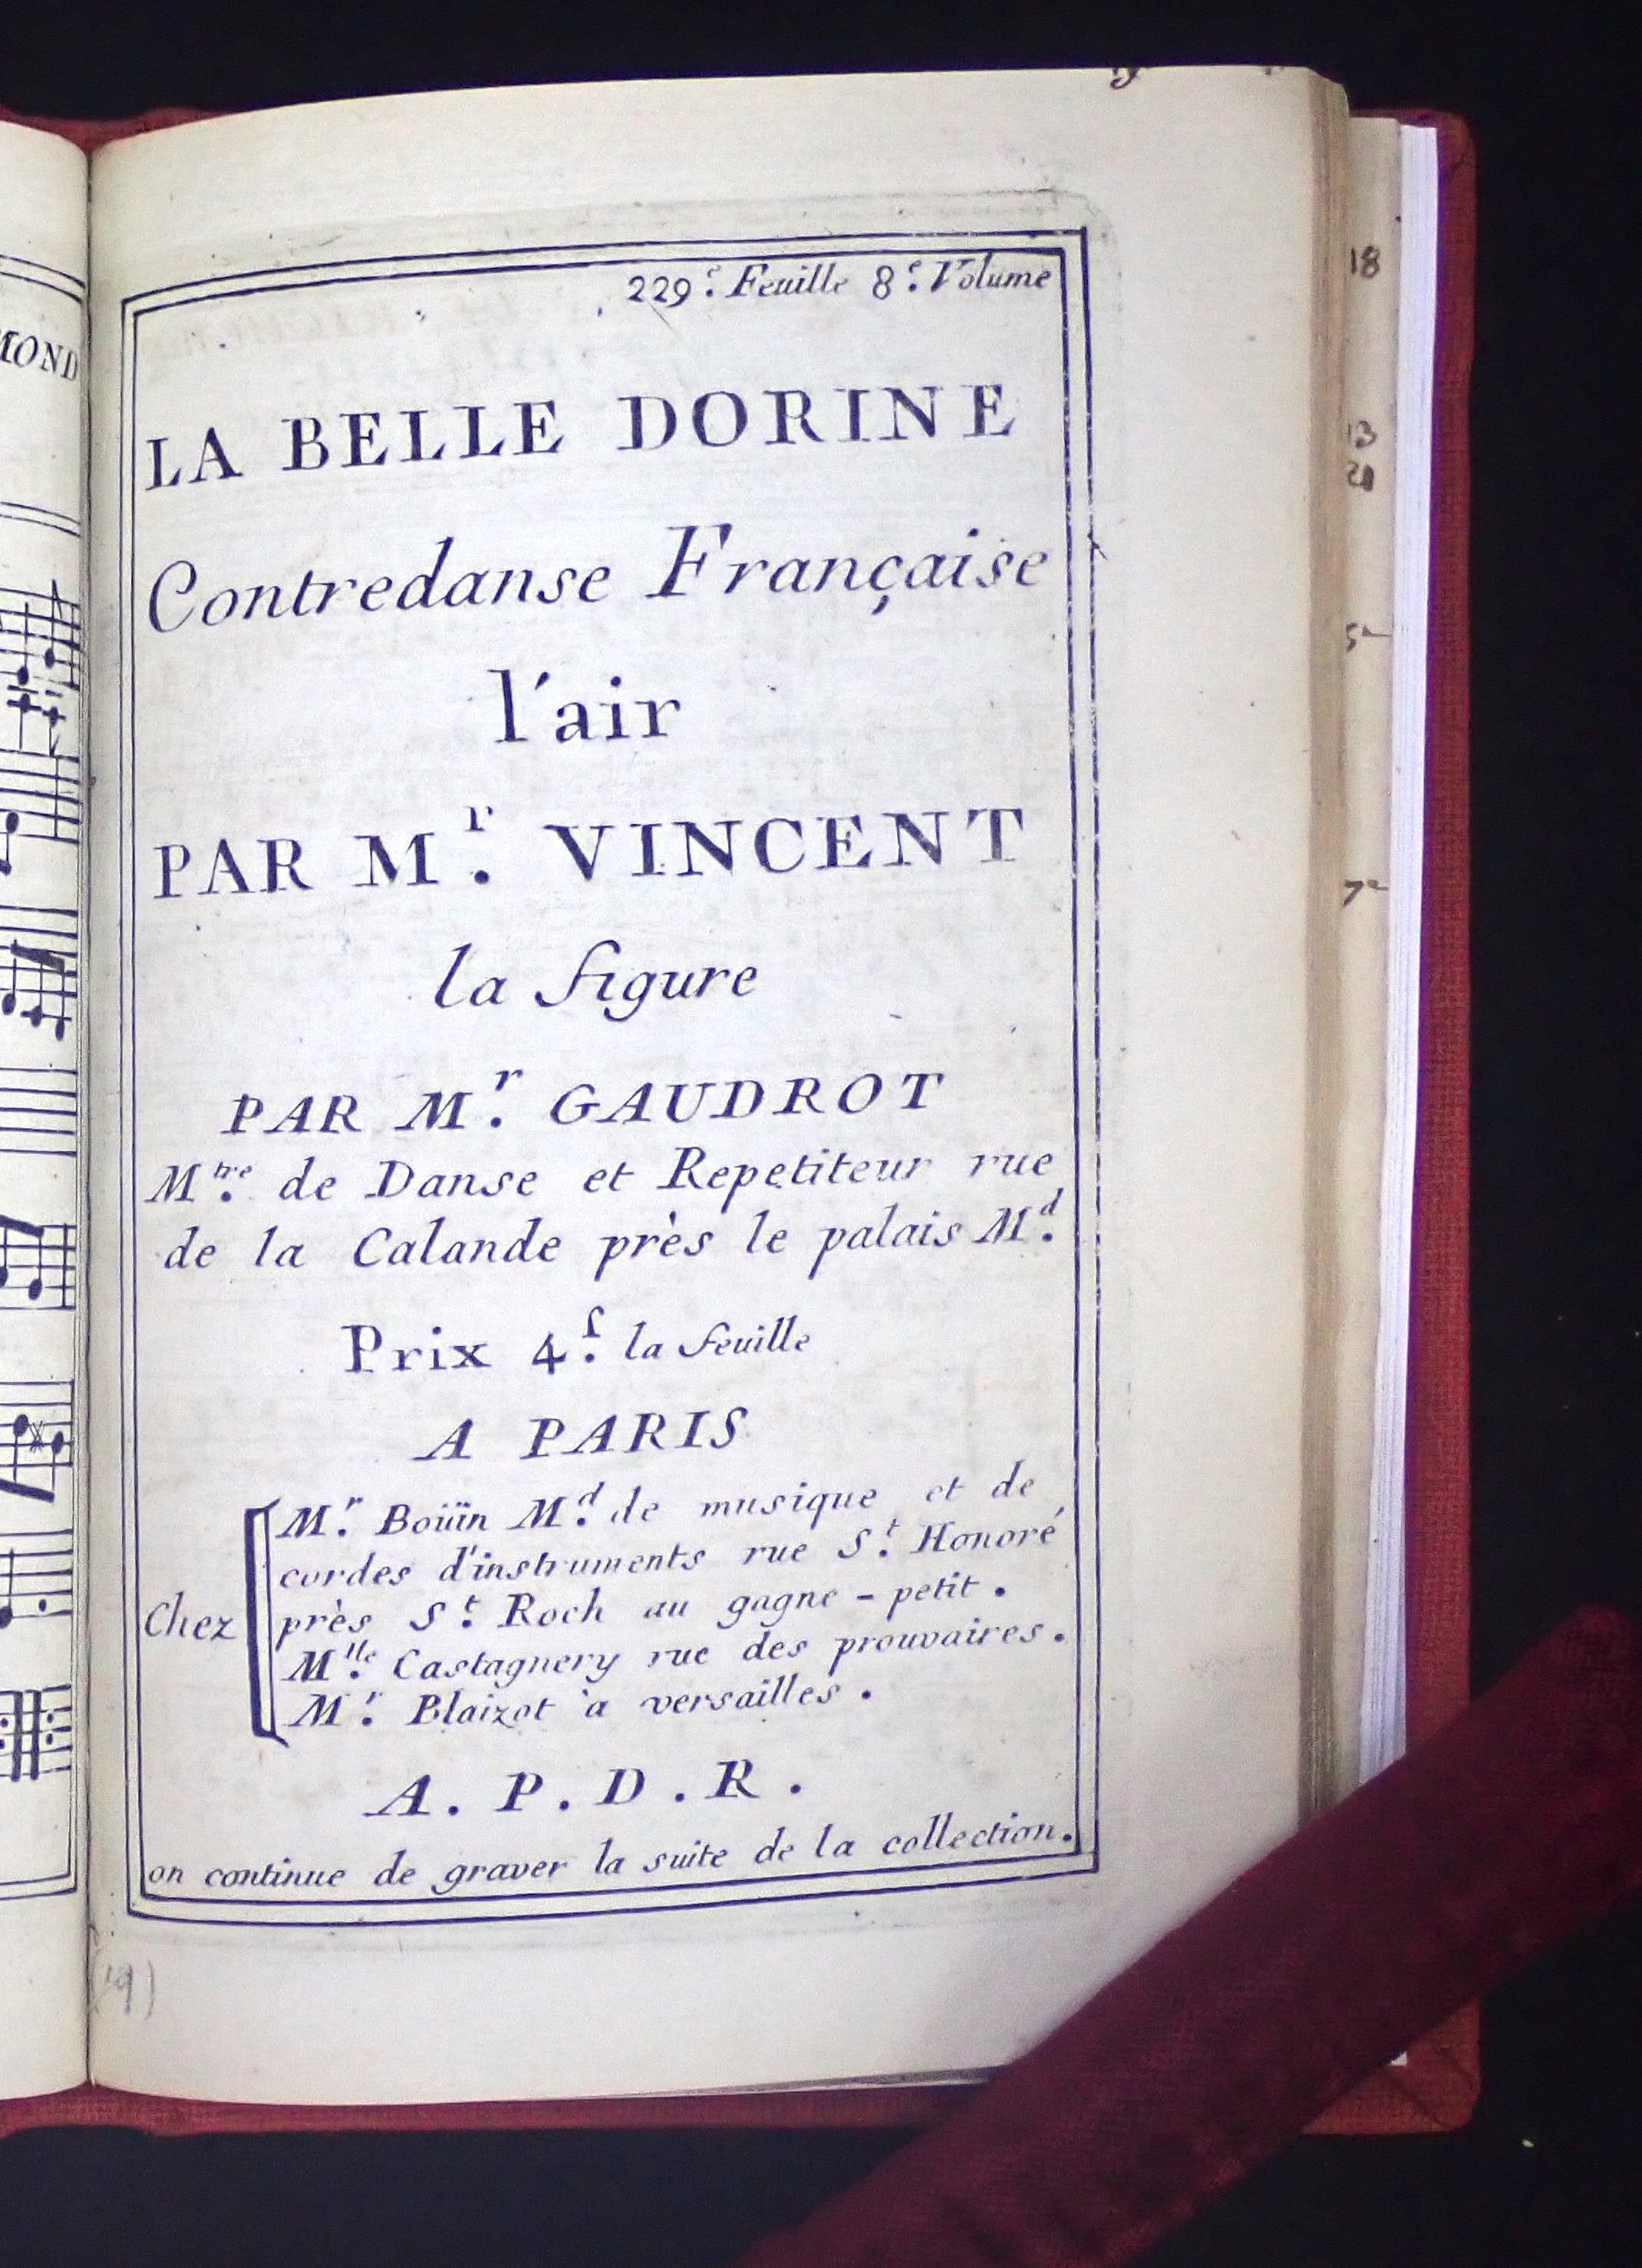 229.e Feuille 8.e Volume
LA BELLE DORINE
Contredanse Française
l'air
PAR M.r VINCENT
la figure
PAR M.r GAUDROT
M.tre de Danse et Repetiteur rue
de la Calande près le palais M.d
Prix 4.s la feuille
A PARIS
M.r Boüin M.d de musique et de
cordes d'instruments rue S.t Honoré
Chez près S.t Roch au gagne-petit.
M.lle Castagnery rue des prouvaires.
M.r Blaizot à versailles.
A.P.D.R.
on continue de graver la suite de la collection.
MOND
18
13